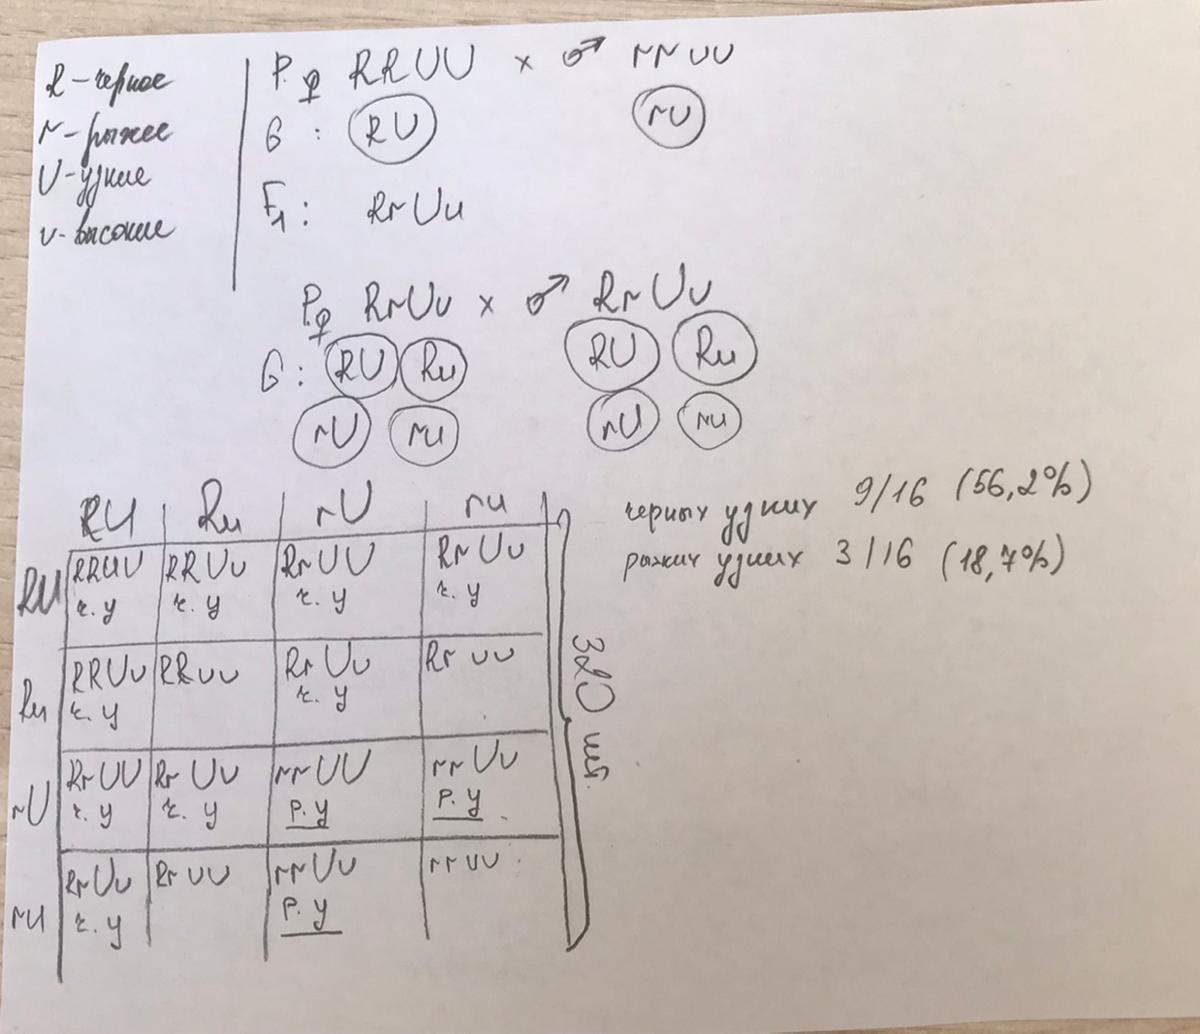 R - черное
r - рыжее
U - узкие
u - высокие
P. ♀ RRUU × ♂ rruu
G : RU rU
F1 : RrUu
P. ♀ RrUu × ♂ RrUu
G : RU Ru RU Ru
rU ru rU ru
RU Ru rU ru
RU RRUU RRUu RrUU RrUu
ч. у ч. у ч. у ч. у
Ru RRUu RRuu RrUu Rruu
ч. у ч. у
rU RrUU RrUu rrUU rrUu
ч. у ч. у р. у р. у
ru RrUu Rruu rrUu rruu
ч. у р. у
320 шт.
черных узких 9/16 (56,2%)
рыжих узких 3/16 (18,7%)